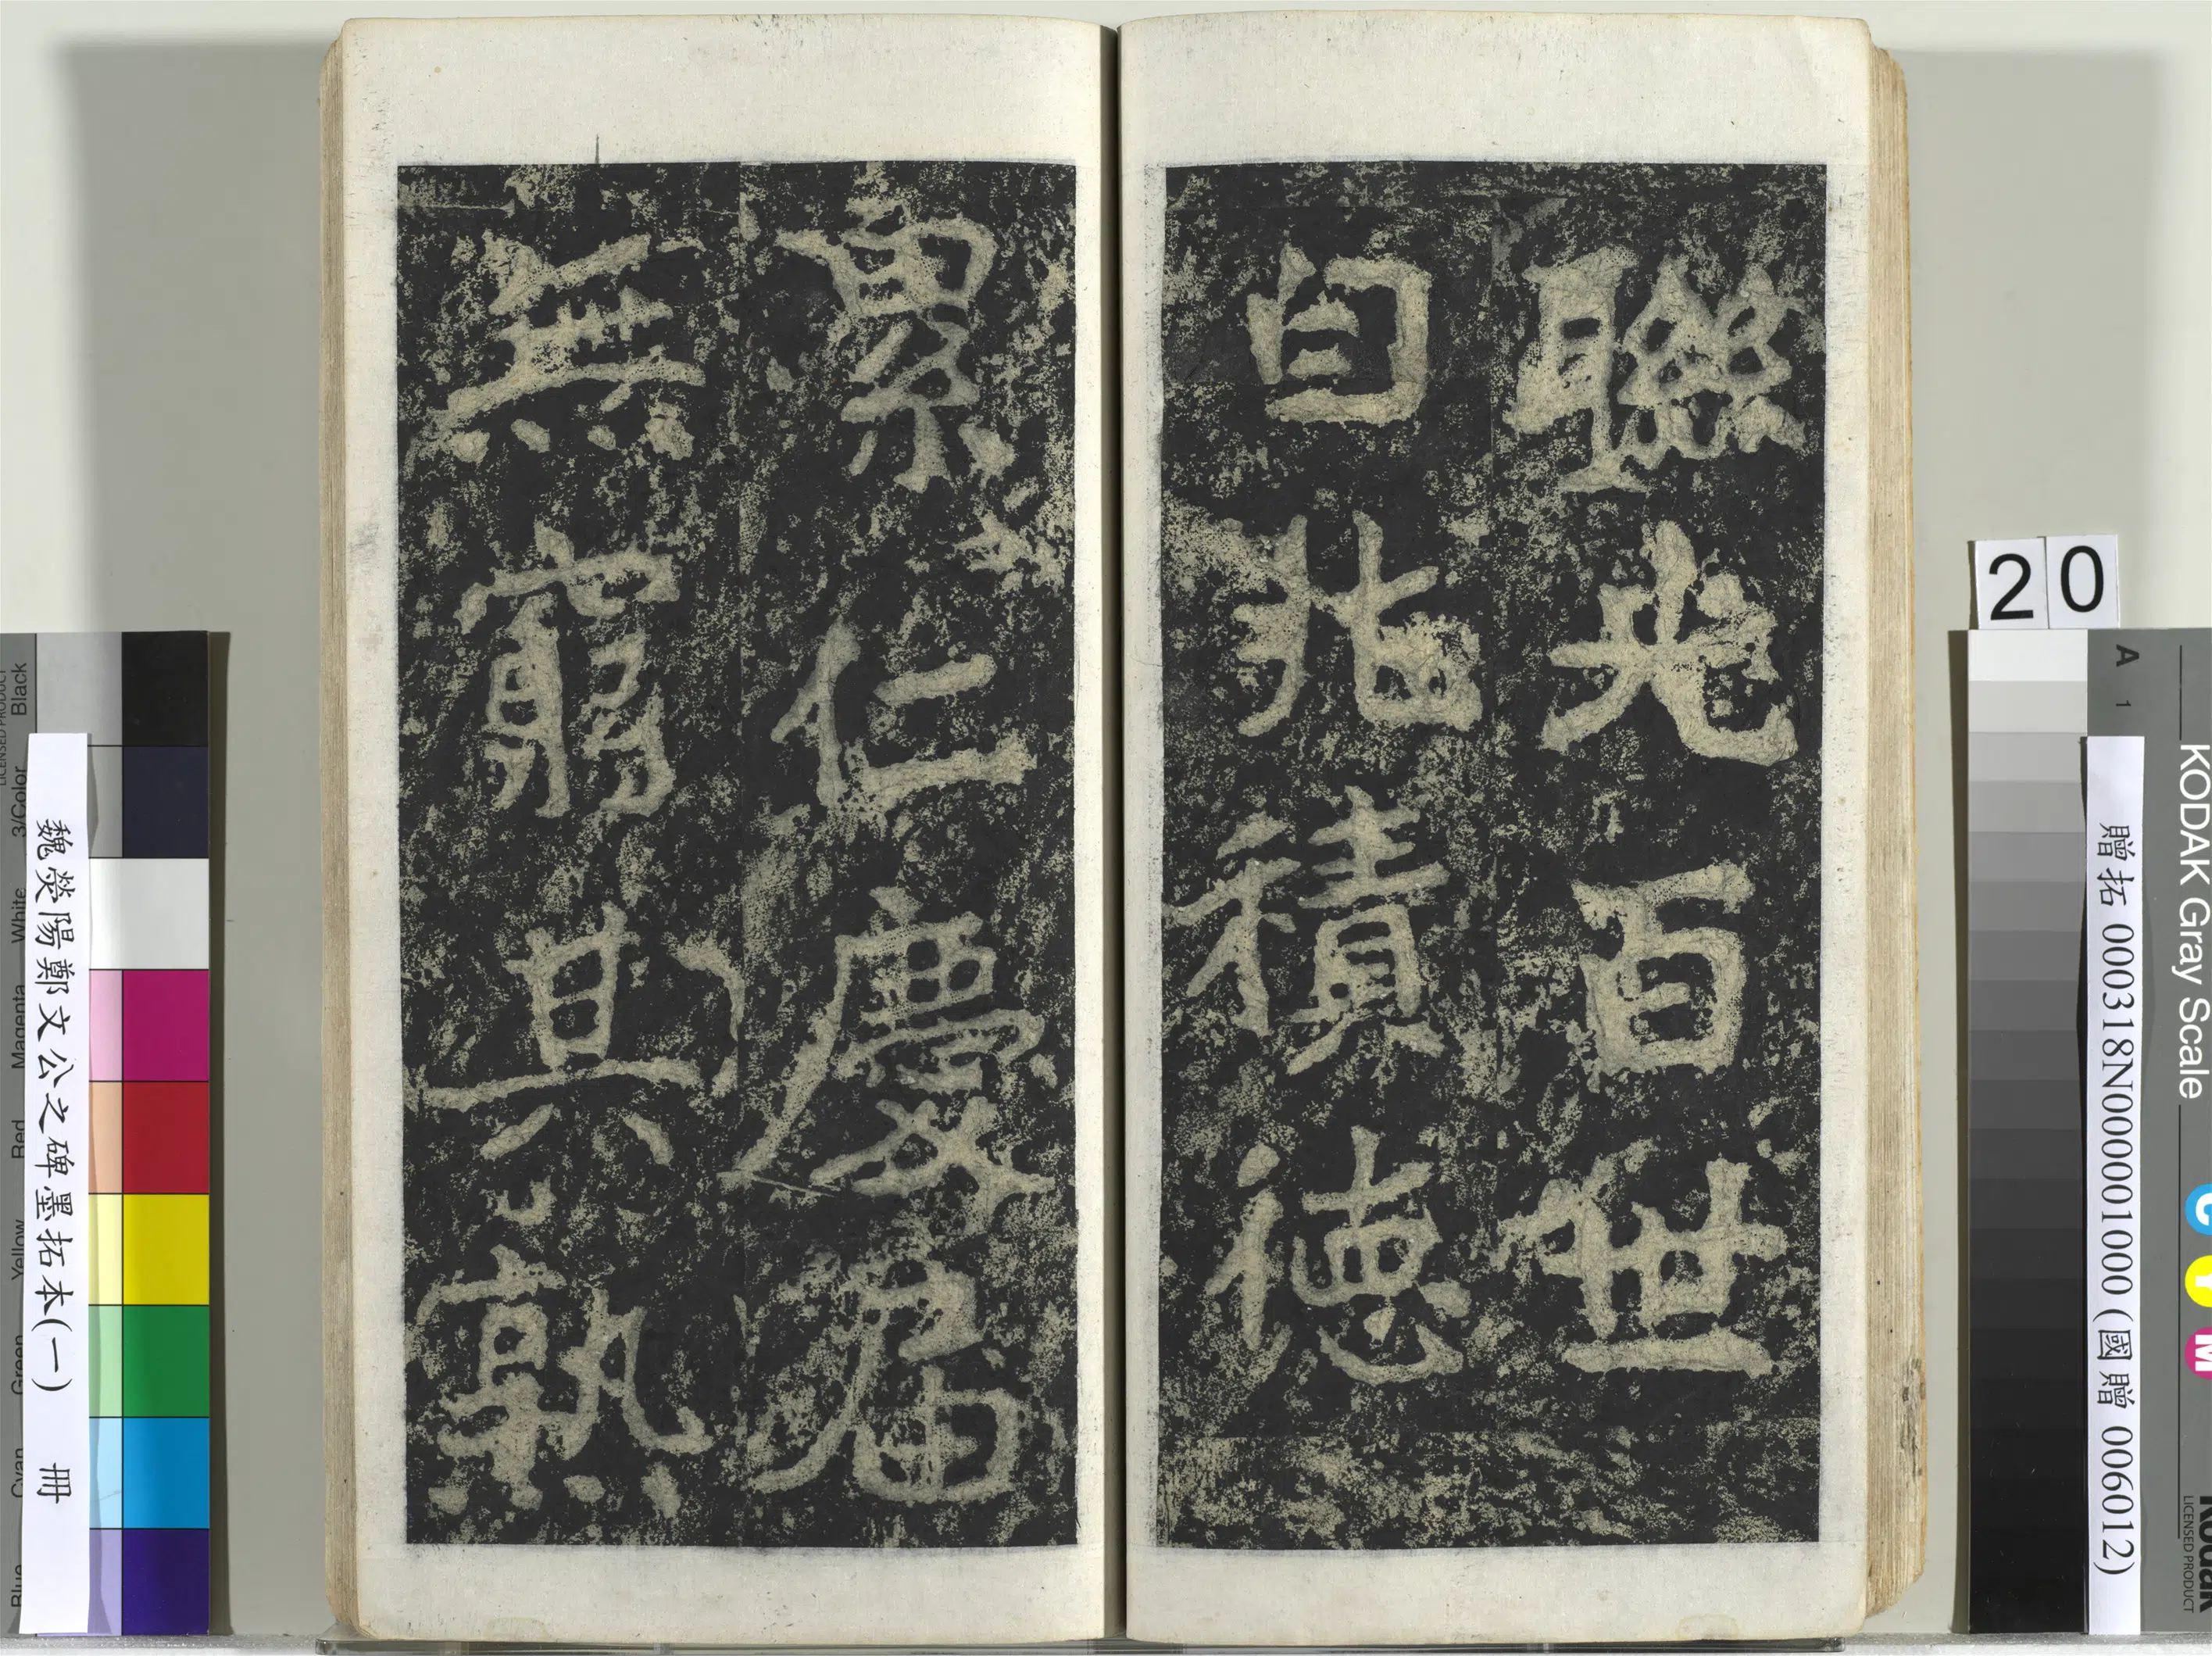 聯光百世
自非積德
累仁慶屆
無窮其熟
魏滎陽鄭文公之碑墨拓本(一) 冊
贈拓 000318N000001000(國贈 006012)
20
A 1
KODAK Gray Scale
C Y M
Kodak
LICENSED PRODUCT
Black
3/Color
White
Magenta
Red
Yellow
Green
Cyan
Blue
LICENSED PRODUCT